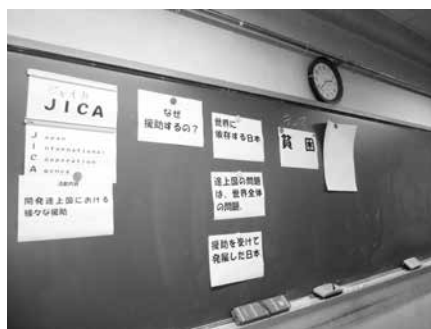 ジャイカ
JICA
J apan
I nternational
C ooperation
A gency
活動内容
開発途上国における
様々な援助
なぜ
援助するの?
世界に
依存する日本
途上国の問題
は、世界全体
の問題。
援助を受けて
発展した日本
貧困